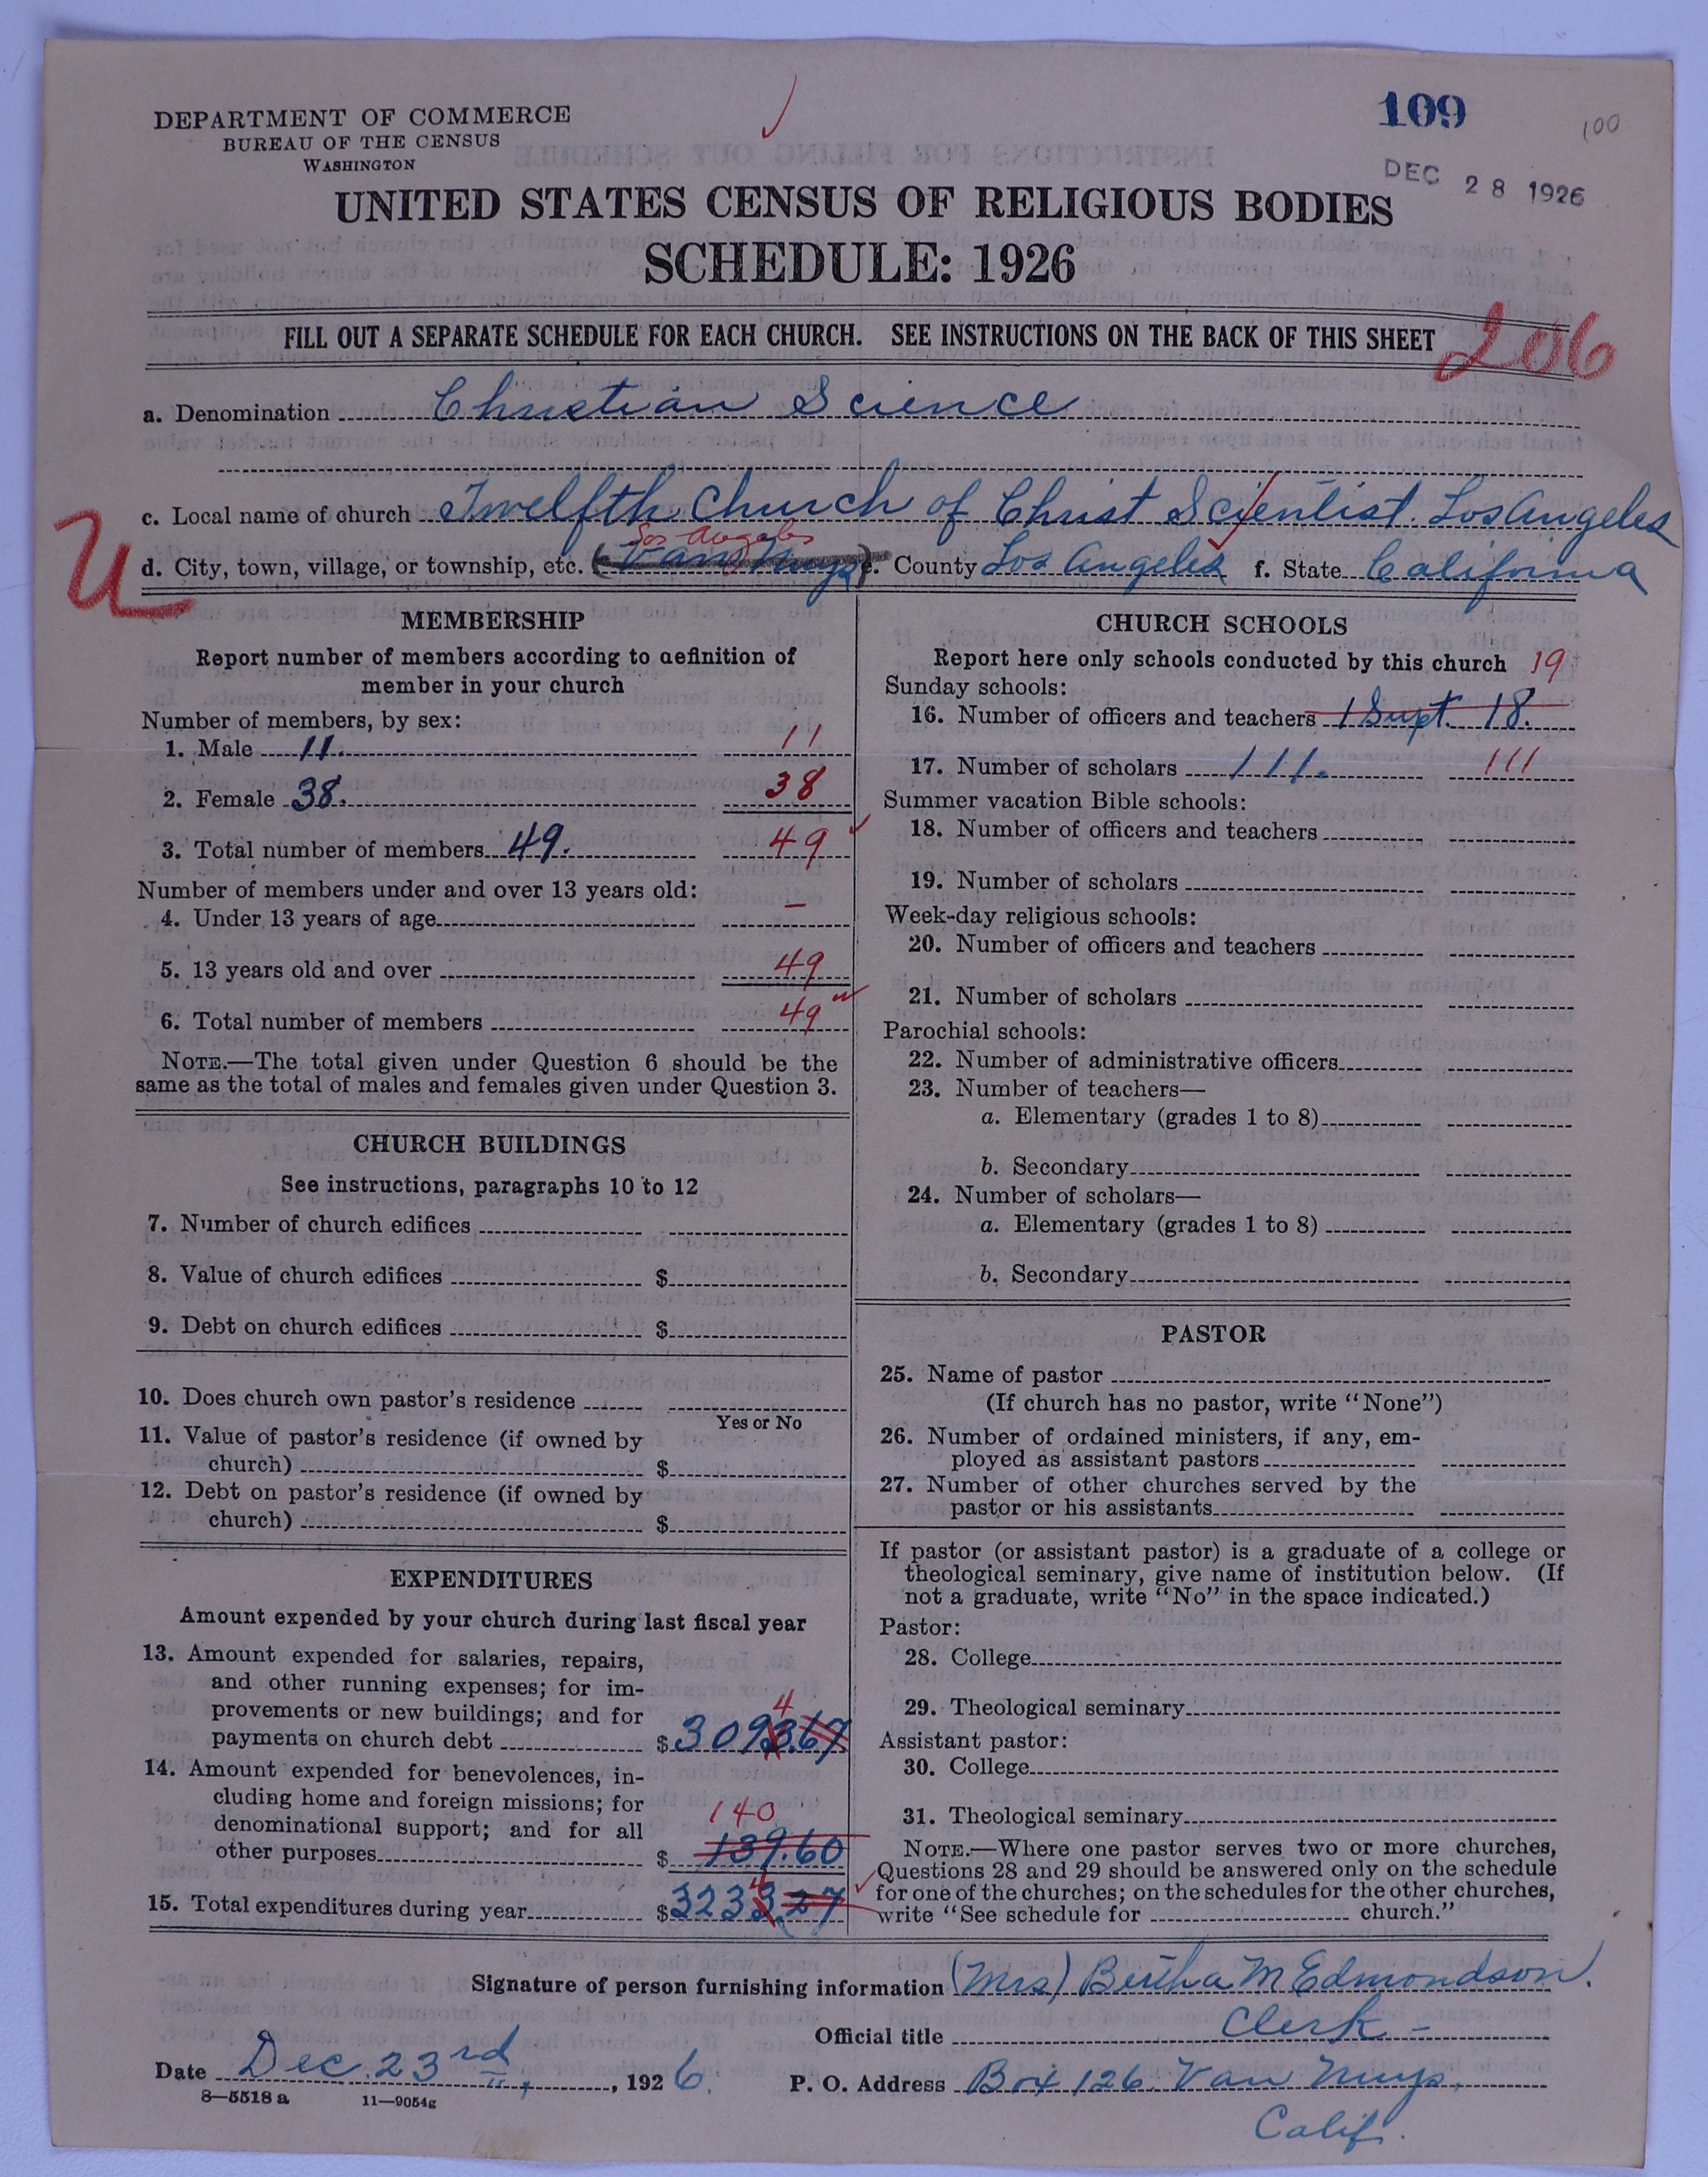 109
100
DEC 28 1926
DEPARTMENT OF COMMERCE
BUREAU OF THE CENSUS
WASHINGTON
UNITED STATES CENSUS OF RELIGIOUS BODIES
SCHEDULE: 1926
FILL OUT A SEPARATE SCHEDULE FOR EACH CHURCH. SEE INSTRUCTIONS ON THE BACK OF THIS SHEET
206
a. Denomination Christian Science
c. Local name of church Twelfth Church of Christ Scientist. Los Angeles
Los Angeles
U
d. City, town, village, or township, etc. (Van Nuys) e. County Los Angeles f. State California
MEMBERSHIP
Report number of members according to definition of
member in your church
Number of members, by sex:
1. Male 11. 11
2. Female 38. 38
3. Total number of members 49. 49
Number of members under and over 13 years old:
4. Under 13 years of age —
5. 13 years old and over 49
6. Total number of members 49
NOTE.—The total given under Question 6 should be the
same as the total of males and females given under Question 3.
CHURCH BUILDINGS
See instructions, paragraphs 10 to 12
7. Number of church edifices
8. Value of church edifices $
9. Debt on church edifices $
10. Does church own pastor's residence
Yes or No
11. Value of pastor's residence (if owned by
church) $
12. Debt on pastor's residence (if owned by
church) $
EXPENDITURES
Amount expended by your church during last fiscal year
13. Amount expended for salaries, repairs,
and other running expenses; for im-
provements or new buildings; and for
4
payments on church debt $3093.67
14. Amount expended for benevolences, in-
cluding home and foreign missions; for
denominational support; and for all
140
other purposes $139.60
4
15. Total expenditures during year $3233.27
CHURCH SCHOOLS
Report here only schools conducted by this church 19
Sunday schools:
16. Number of officers and teachers 1 Supt. 18.
17. Number of scholars 111. 111
Summer vacation Bible schools:
18. Number of officers and teachers
19. Number of scholars
Week-day religious schools:
20. Number of officers and teachers
21. Number of scholars
Parochial schools:
22. Number of administrative officers
23. Number of teachers—
a. Elementary (grades 1 to 8)
b. Secondary
24. Number of scholars—
a. Elementary (grades 1 to 8)
b. Secondary
PASTOR
25. Name of pastor
(If church has no pastor, write "None")
26. Number of ordained ministers, if any, em-
ployed as assistant pastors
27. Number of other churches served by the
pastor or his assistants
If pastor (or assistant pastor) is a graduate of a college or
theological seminary, give name of institution below. (If
not a graduate, write "No" in the space indicated.)
Pastor:
28. College
29. Theological seminary
Assistant pastor:
30. College
31. Theological seminary
NOTE.—Where one pastor serves two or more churches,
Questions 28 and 29 should be answered only on the schedule
for one of the churches; on the schedules for the other churches,
write "See schedule for church."
Signature of person furnishing information (Mrs) Bertha M Edmondson.
Official title Clerk -
Date Dec. 23rd, 1926.
P. O. Address Box 126. Van Nuys.
Calif.
8—5518 a 11—9054g